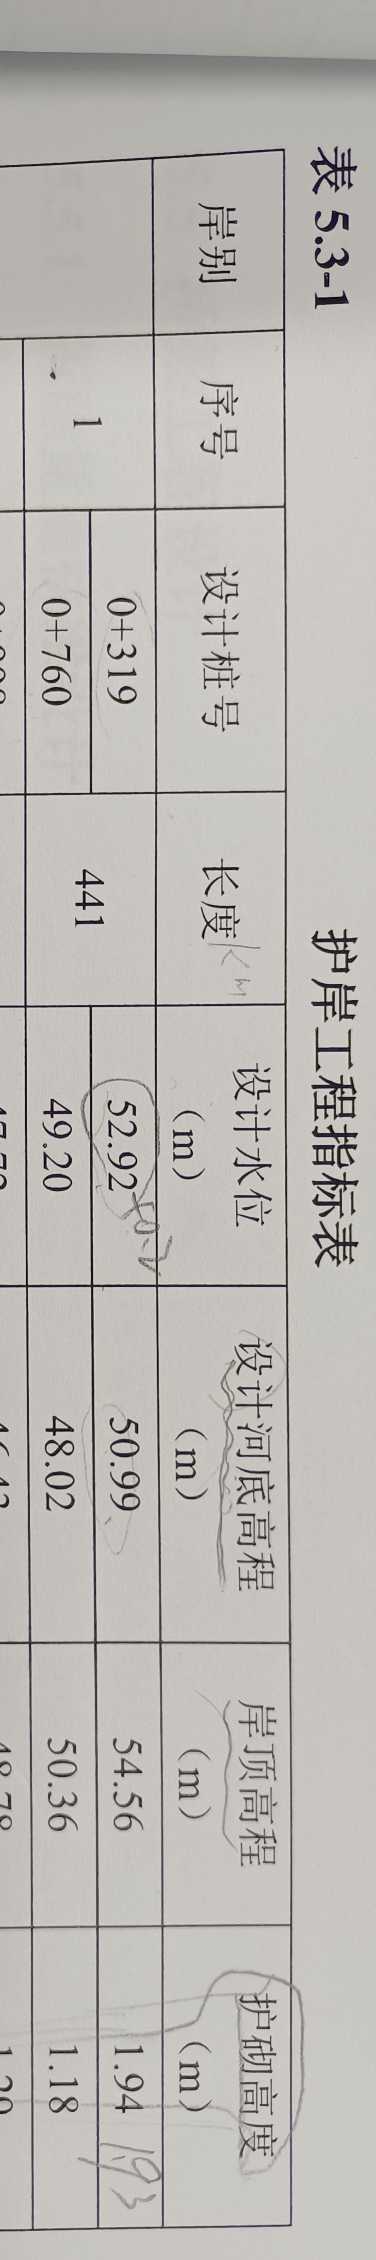 表 5.3-1 护岸工程指标表
岸别 序号 设计桩号 长度 Km 设计水位（m） 设计河底高程（m） 岸顶高程（m） 护砌高度（m）
1 0+319 441 52.92 +0.2 50.99 54.56 1.94 1.93
0+760 49.20 48.02 50.36 1.18